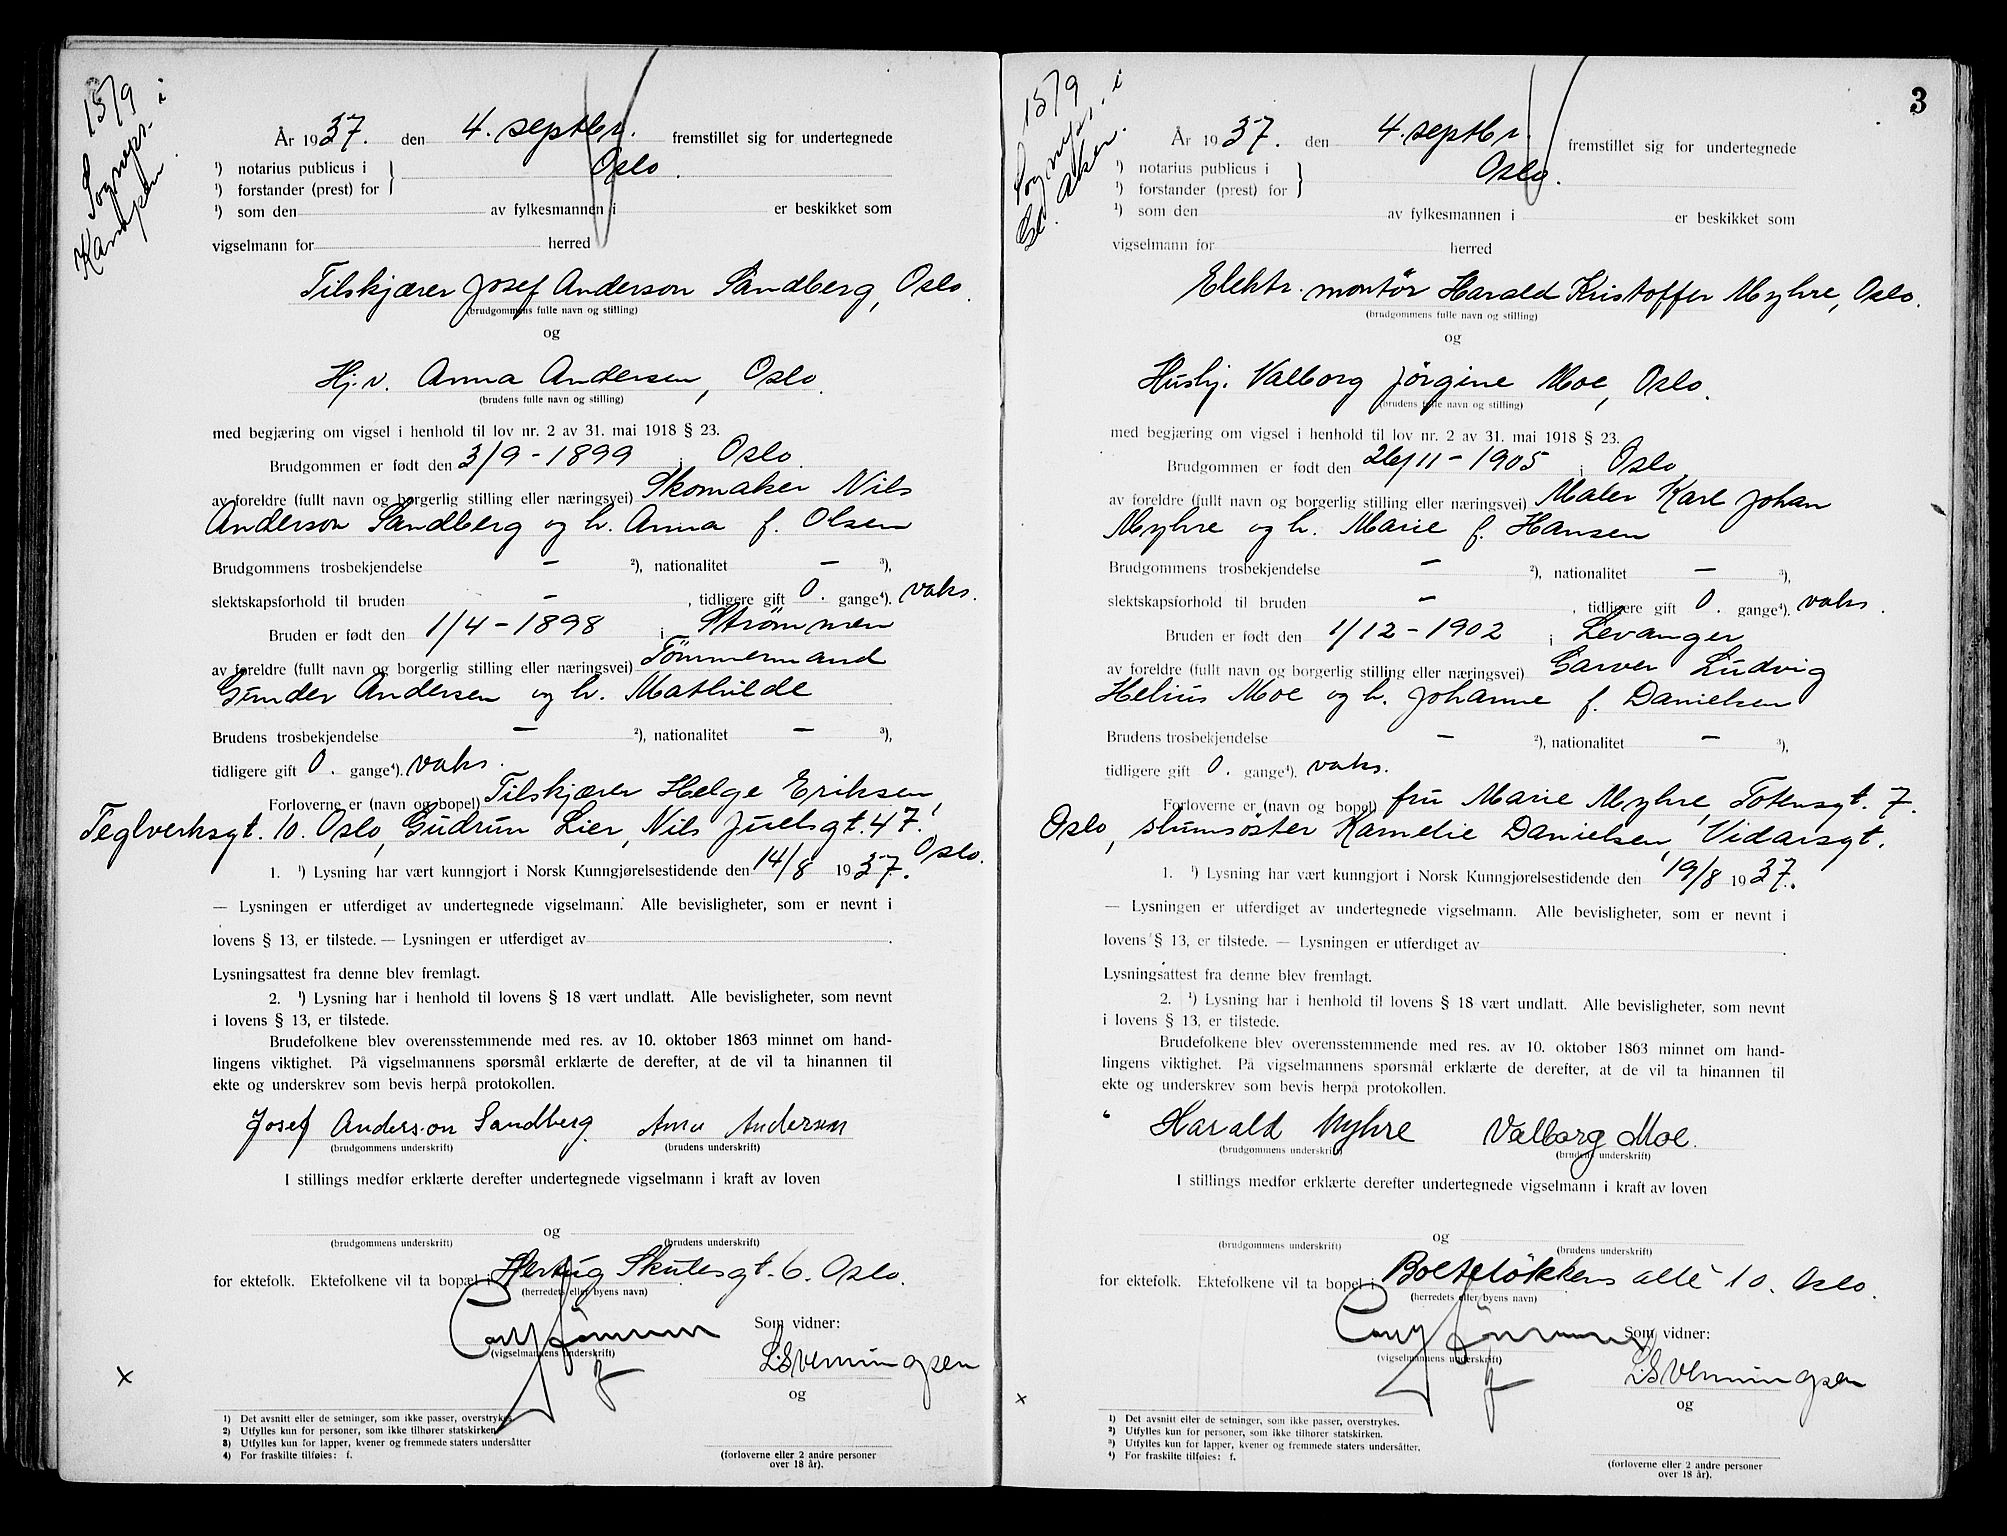 15/9
Sogneps. i
Kampen.
År 1937. den 4. septbr. fremstillet sig for undertegnede
¹) notarius publicus i
¹) forstander (prest) for } Oslo.
¹) som den av fylkesmannen i er beskikket som
vigselmann for herred
Tilskjærer Josef Anderson Sandberg, Oslo.
(brudgommens fulle navn og stilling)
og
Hj.v. Anna Andersen, Oslo.
(brudens fulle navn og stilling)
med begjæring om vigsel i henhold til lov nr. 2 av 31. mai 1918 § 23.
Brudgommen er født den 3/9 - 1899 i Oslo.
av foreldre (fullt navn og borgerlig stilling eller næringsvei) Skomaker Nils
Anderson Sandberg og h. Anna f. Olsen
Brudgommens trosbekjendelse — ²), nationalitet — ³),
slektskapsforhold til bruden — , tidligere gift 0. gange⁴). vaks.
Bruden er født den 1/4 - 1898 i Strömmen
av foreldre (fullt navn og borgerlig stilling eller næringsvei) Tömmermand
Gunder Andersen og h. Mathilde
Brudens trosbekjendelse — ²), nationalitet — ³),
tidligere gift 0. gange⁴). vaks.
Forloverne er (navn og bopel) Tilskjærer Helge Eriksen,
Teglverksgt. 10. Oslo, Gudrun Lier, Nils Juelsgt. 47.
Oslo.
1. ¹) Lysning har vært kunngjort i Norsk Kunngjørelsestidende den 14/8 1937.
— Lysningen er utferdiget av undertegnede vigselmann. Alle bevisligheter, som er nevnt i
lovens § 13, er tilstede. — Lysningen er utferdiget av .
Lysningsattest fra denne blev fremlagt.
2. ¹) Lysning har i henhold til lovens § 18 vært undlatt. Alle bevisligheter, som nevnt
i lovens § 13, er tilstede.
Brudefolkene blev overensstemmende med res. av 10. oktober 1863 minnet om hand-
lingens viktighet. På vigselmannens spørsmål erklærte de derefter, at de vil ta hinannen til
ekte og underskrev som bevis herpå protokollen.
Josef Anderson Sandberg. Anna Andersen
(brudgommens underskrift) (brudens underskrift)
I stillings medfør erklærte derefter undertegnede vigselmann i kraft av loven
og
(brudgommens underskrift) (brudens underskrift)
for ektefolk. Ektefolkene vil ta bopæl i Hertug Skulesgt. 6. Oslo.
(herredets eller byens navn)
Som vidner:
(vigselmannens underskrift)
og
x
1) Det avsnitt eller de setninger, som ikke passer, overstrykes.
2) Utfylles kun for personer, som ikke tilhører statskirken.
3) Utfylles kun for lapper, kvener og fremmede staters undersåtter
4) For fraskilte tilføies: f.
(forloverne eller 2 andre personer
over 18 år).
3
15/9
Sogneps. i
Gl. Aker.
År 1937. den 4. septbr. fremstillet sig for undertegnede
¹) notarius publicus i
¹) forstander (prest) for } Oslo.
¹) som den av fylkesmannen i er beskikket som
vigselmann for herred
Elektr. montör Harald Kristoffer Myhre, Oslo.
(brudgommens fulle navn og stilling)
og
Hushj. Valborg Jörgine Moe, Oslo.
(brudens fulle navn og stilling)
med begjæring om vigsel i henhold til lov nr. 2 av 31. mai 1918 § 23.
Brudgommen er født den 26/11 - 1905 i Oslo.
av foreldre (fullt navn og borgerlig stilling eller næringsvei) Maler Karl Johan
Myhre og h. Marie f. Hansen
Brudgommens trosbekjendelse — ²), nationalitet — ³),
slektskapsforhold til bruden — , tidligere gift 0. gange⁴). vaks.
Bruden er født den 1/12 - 1902 i Levanger
av foreldre (fullt navn og borgerlig stilling eller næringsvei) Garver Ludvig
Helius Moe og h. Johanne f. Danielsen
Brudens trosbekjendelse — ²), nationalitet — ³),
tidligere gift 0. gange⁴). vaks.
Forloverne er (navn og bopel) fru Marie Myhre, Totensgt. 7.
Oslo, slumsöster Kamelie Danielsen, Vidarsgt.
1. ¹) Lysning har vært kunngjort i Norsk Kunngjørelsestidende den 19/8 1937.
— Lysningen er utferdiget av undertegnede vigselmann. Alle bevisligheter, som er nevnt i
lovens § 13, er tilstede. — Lysningen er utferdiget av .
Lysningsattest fra denne blev fremlagt.
2. ¹) Lysning har i henhold til lovens § 18 vært undlatt. Alle bevisligheter, som nevnt
i lovens § 13, er tilstede.
Brudefolkene blev overensstemmende med res. av 10. oktober 1863 minnet om hand-
lingens viktighet. På vigselmannens spørsmål erklærte de derefter, at de vil ta hinannen til
ekte og underskrev som bevis herpå protokollen.
Harald Myhre Valborg Moe.
(brudgommens underskrift) (brudens underskrift)
I stillings medfør erklærte derefter undertegnede vigselmann i kraft av loven
og
(brudgommens underskrift) (brudens underskrift)
for ektefolk. Ektefolkene vil ta bopel i Bolteløkkens allé 10. Oslo.
(herredets eller byens navn)
Som vidner:
(vigselmannens underskrift)
og
x
¹) Det avsnitt eller de setninger, som ikke passer, overstrykes.
²) Utfylles kun for personer, som ikke tilhører statskirken.
³) Utfylles kun for lapper, kvener og fremmede staters undersåtter.
⁴) For fraskilte tilføies: f.
(forloverne eller 2 andre personer
over 18 år).